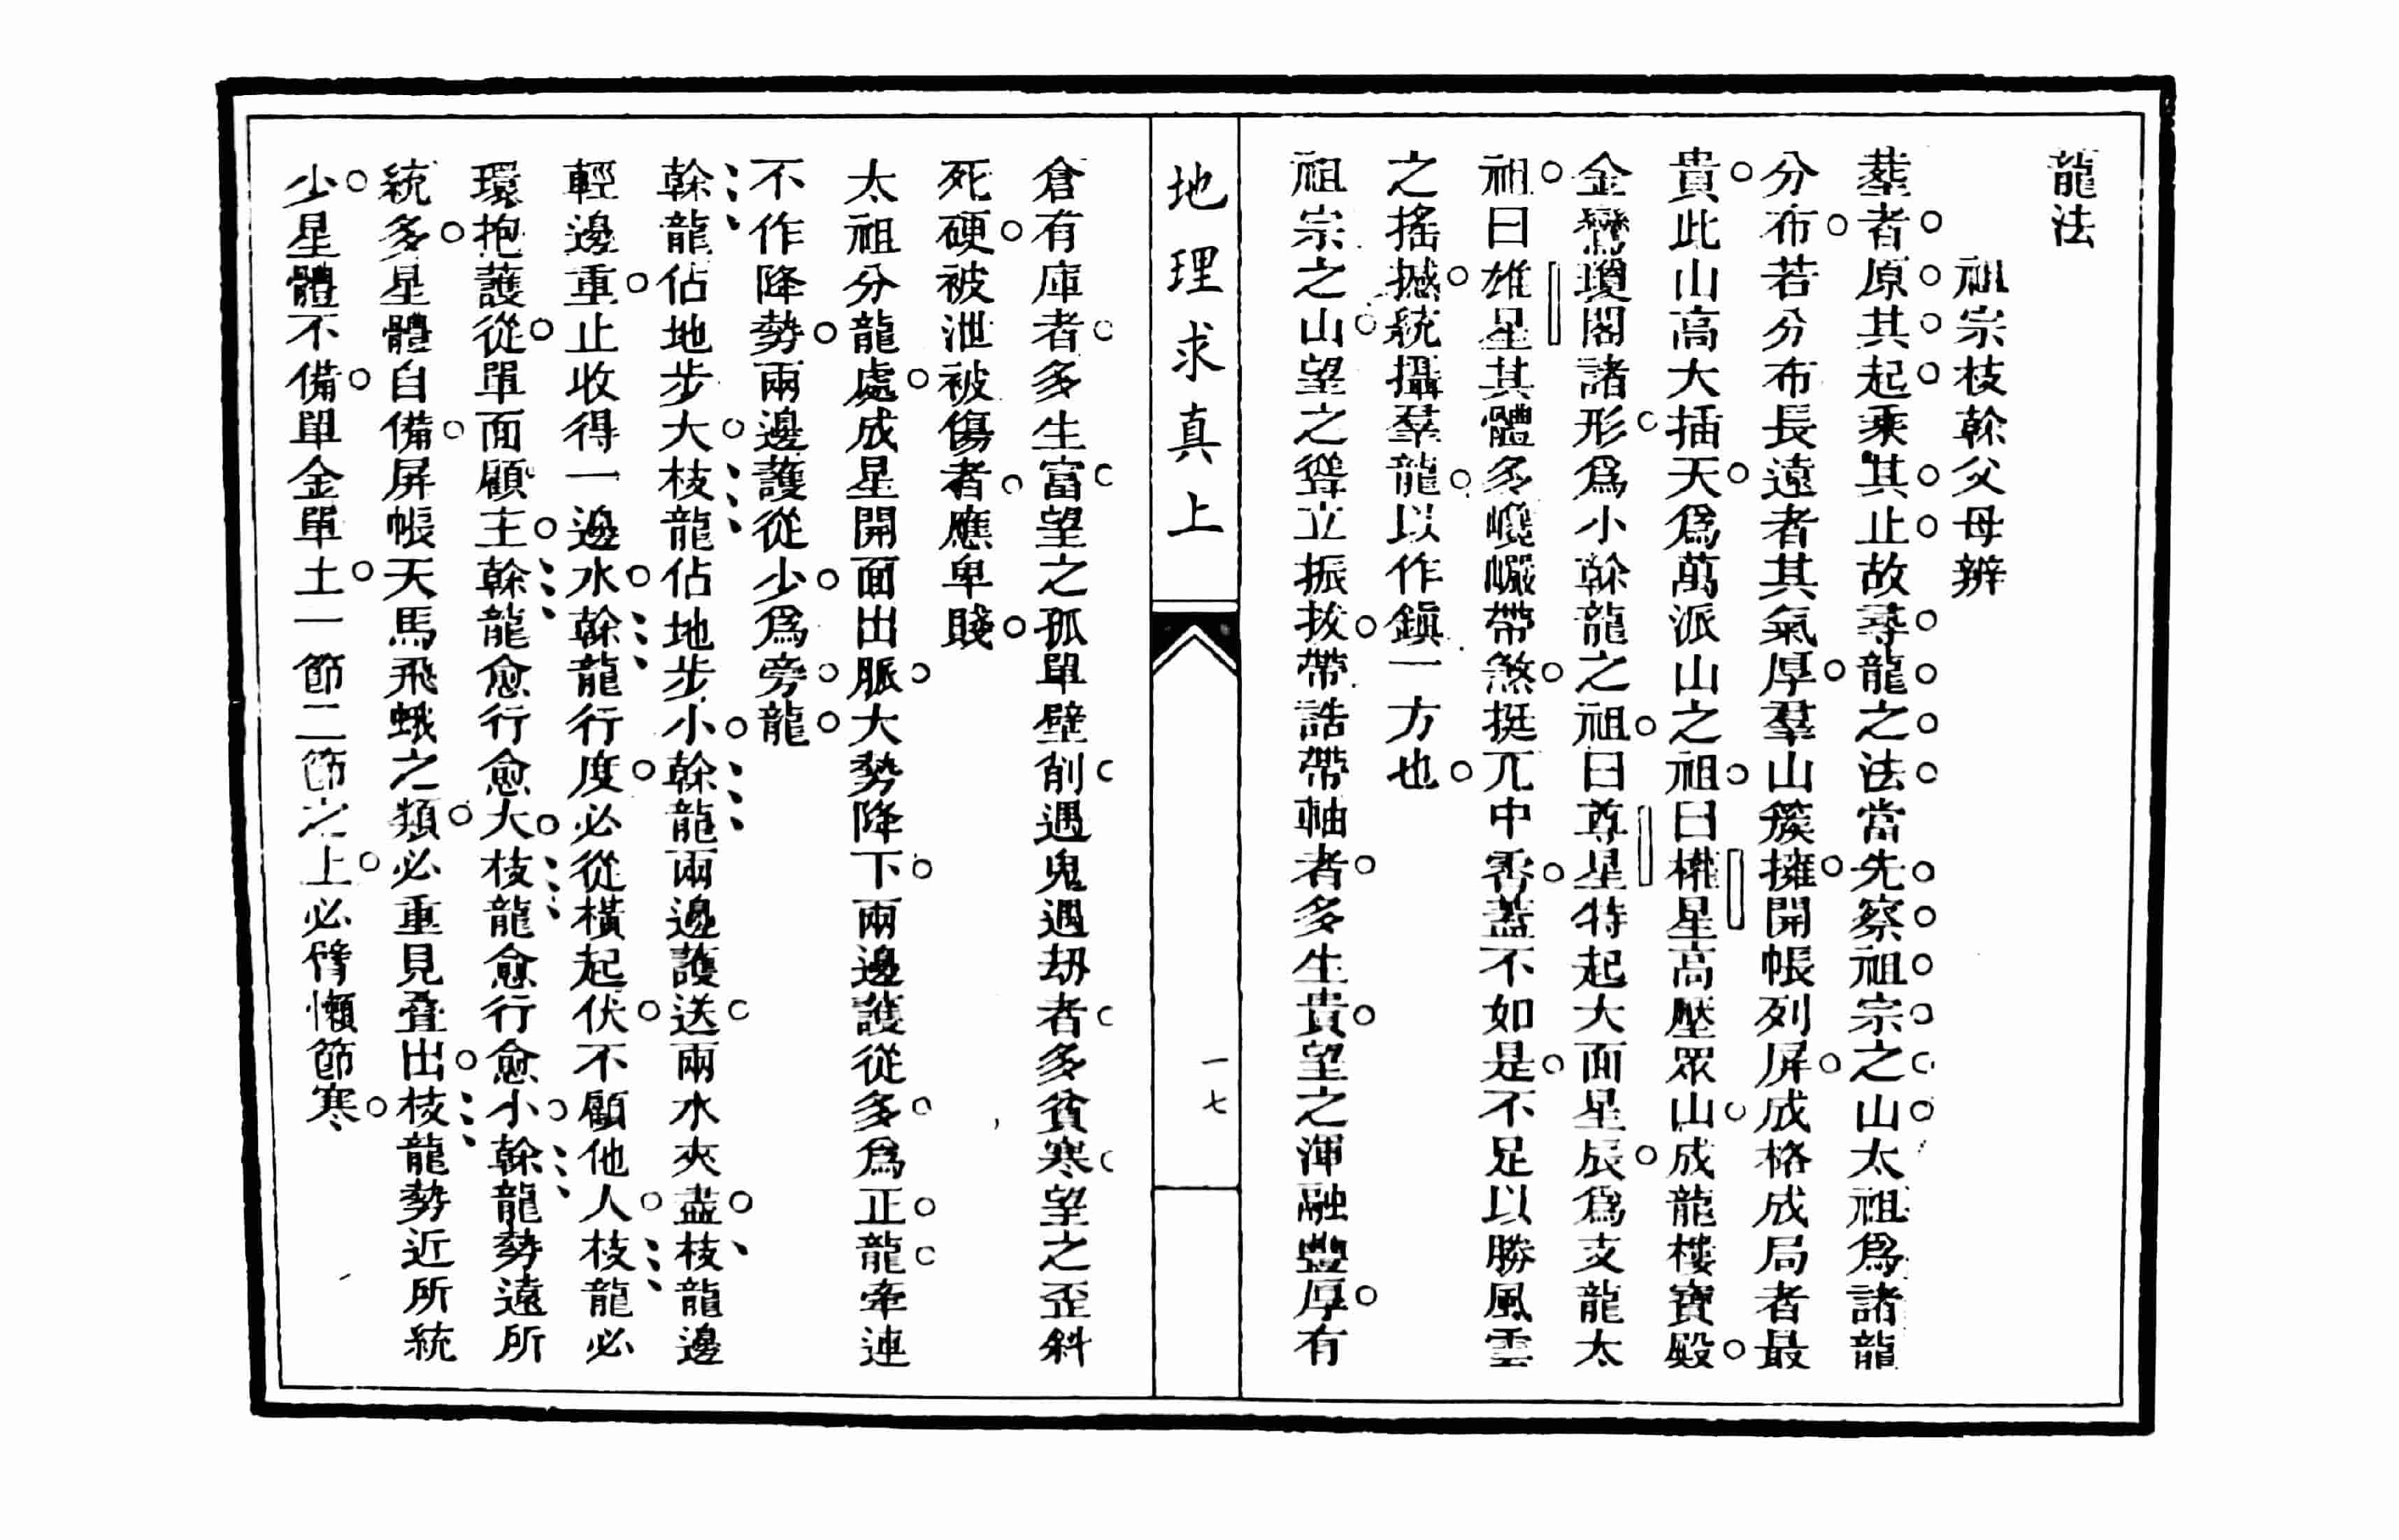 龍法
祖宗枝榦父母辨
葬者原其起乘其止故尋龍之法當先察祖宗之山太祖爲諸龍
分布若分布長遠者其氣厚羣山簇擁開帳列屏成格成局者最
貴此山高大插天爲萬派山之祖曰權星高壓眾山成龍樓寶殿
金鸞瓊閣諸形爲小榦龍之祖曰尊星特起大面星辰爲支龍太
祖曰雄星其體多巉巖帶煞挺兀中雲蓋不如是不足以勝風雲
之搖撼統攝羣龍以作鎭一方也
祖宗之山望之聳立振拔帶誥帶軸者多生貴望之渾融豐厚有
地理求真上
一七
倉有庫者多生富望之孤單壁削遇鬼遇刼者多貧寒望之歪斜
死硬被泄被傷者應卑賤
太祖分龍處成星開面出脈大勢降下兩邊護從多爲正龍牽連
不作降勢兩邊護從少爲旁龍
榦龍佔地步大枝龍佔地步小榦龍兩邊護送兩水夾盡枝龍邊
輕邊重止收得一邊水榦龍行度必從橫起伏不顧他人枝龍必
環抱護從單面顧主榦龍愈行愈大枝龍愈行愈小榦龍勢遠所
統多星體自備屏帳天馬飛蛾之類必重見叠出枝龍勢近所統
少星體不備單金單土一節二節之上必脊懶節寒